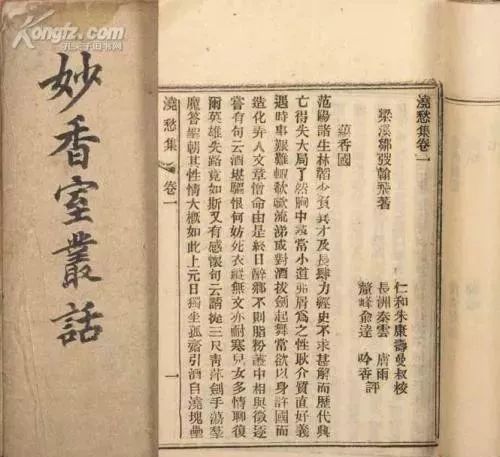 Kongfz.com
孔夫子旧书网
妙香室叢話
澆愁集卷一
梁溪鄒弢翰飛著
仁和朱康壽曼叔校
長洲秦雲 膚雨
俞達 吟香評
香國
范陽諸生林韜少負異才及長肆力經史不求甚解而歷代興
亡得失大局了然胸中當小道弗屑爲之性耿介質直好義
遇時事艱難輒欷歔流涕或對酒拔劍起舞常欲以身許國而
造化弄人文章憎命由是終日醉鄉不則脂粉叢中相與徵逐
嘗有句云酒堪驅恨何妨死衣縱無文亦耐寒兒女多情聊復
爾英雄失路竟如斯又有感懷句云請三尺靑萍劍手蕩羣
魔答聖朝其性情大概如此上元日獨坐孤齋引酒自澆塊壘
澆愁集 卷一 一